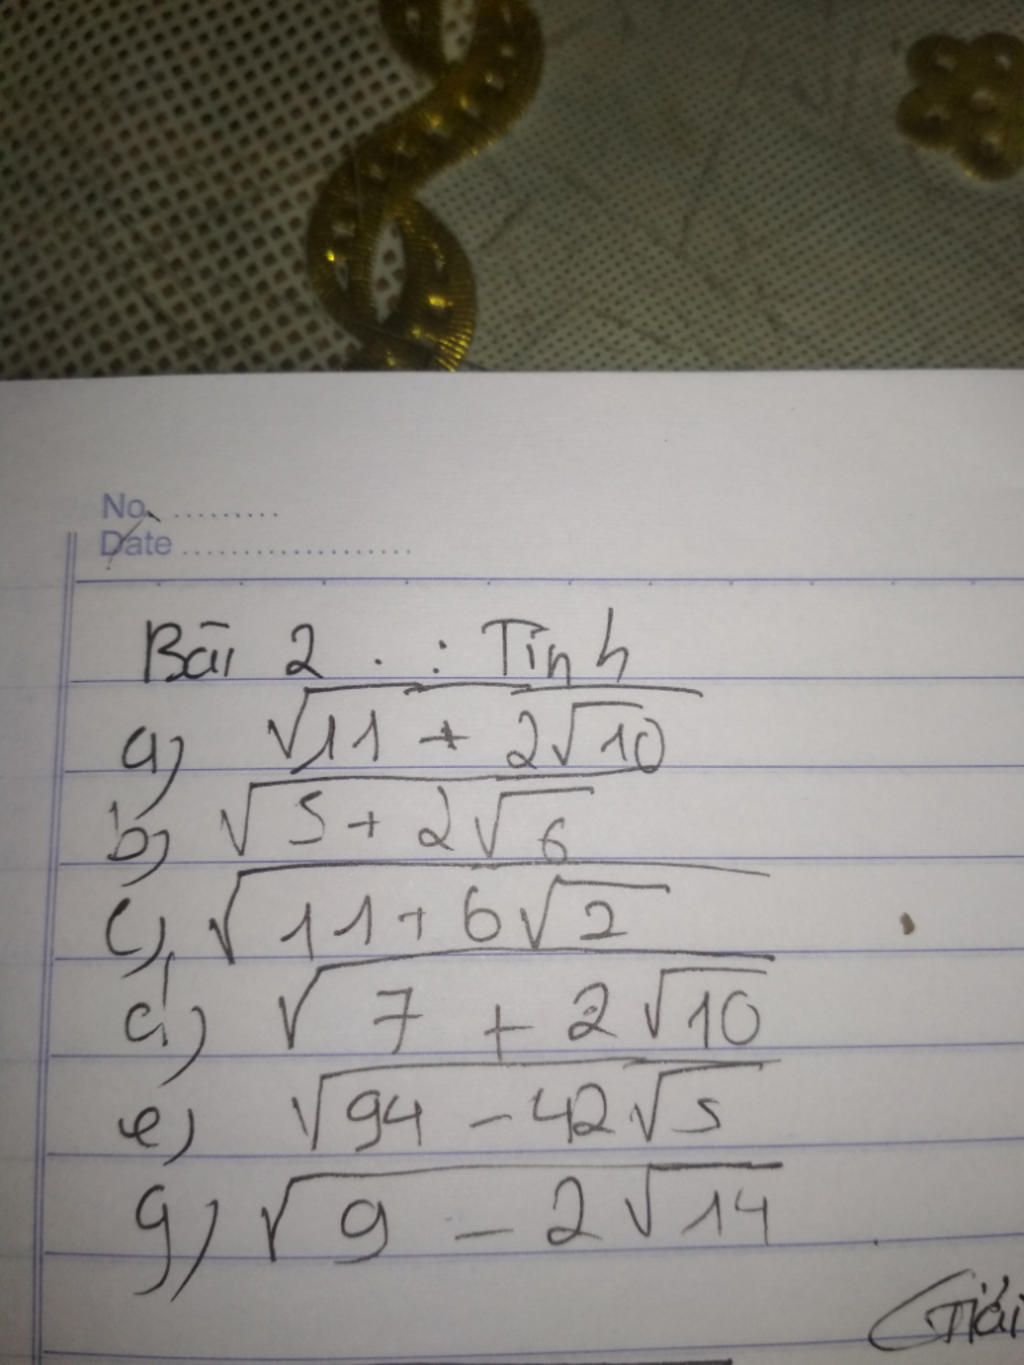 No. .........
Date ....................
Bài 2 . : Tính
a) √(11 + 2√10)
b) √(5 + 2√6)
c) √(11 + 6√2)
d) √(7 + 2√10)
e) √(94 - 42√5)
g) √(9 - 2√14)
Giải